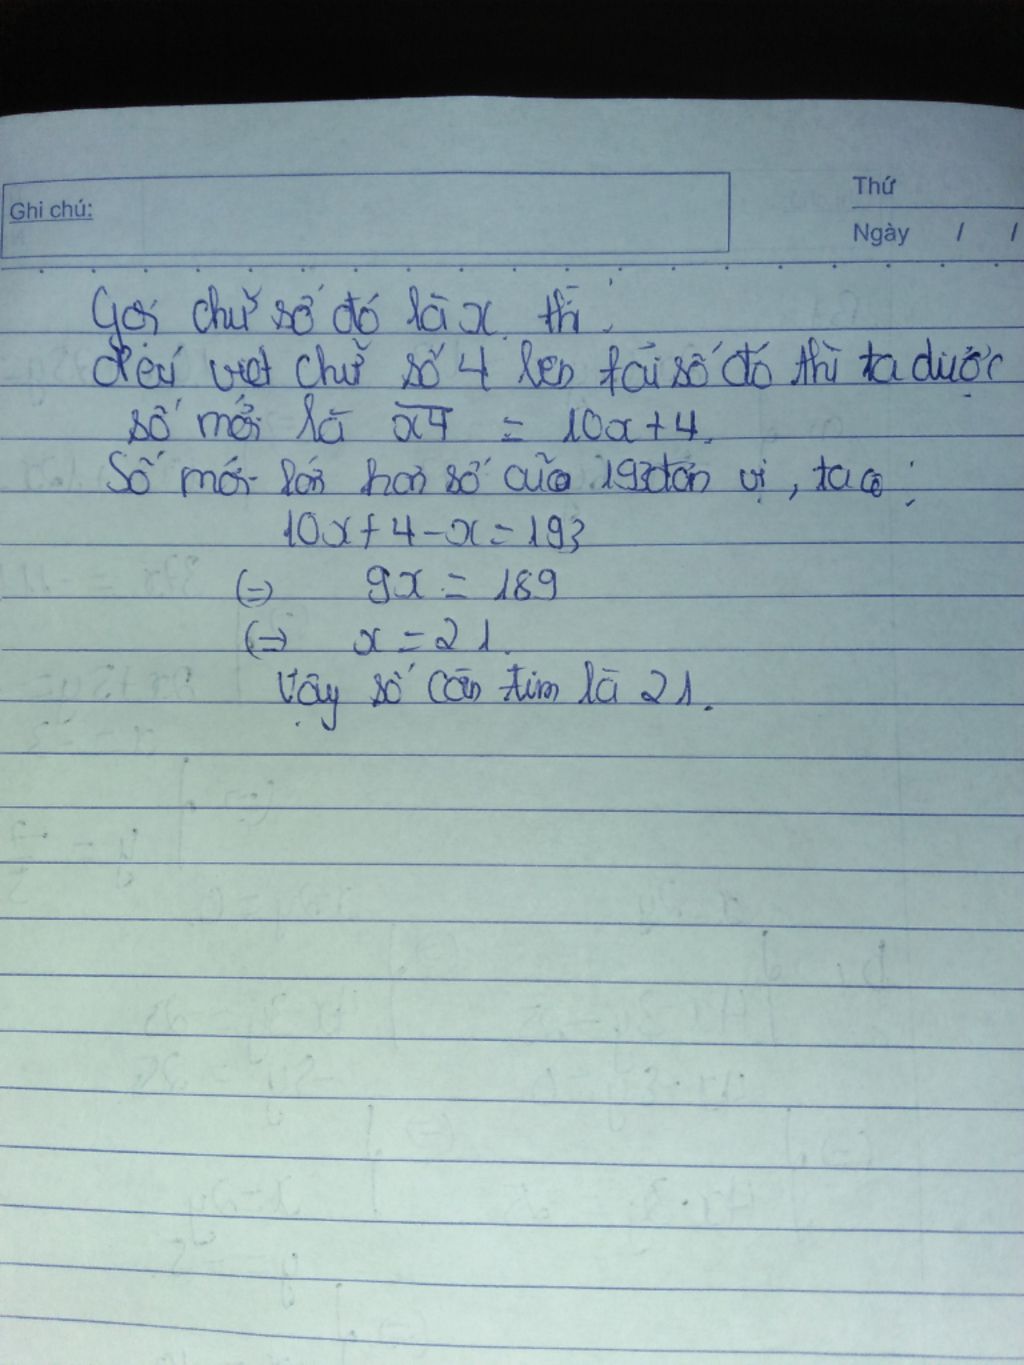 Ghi chú:
Thứ
Ngày / /
Gọi chữ số đó là x thì:
viet chữ số 4 bên fải số đó thì ta được
số mới là x̅4̅ = 10x+4.
Số mới lớn hơn số cũ 193 đơn vị, ta có:
10x+4-x=193
(=) 9x = 189
(=> x = 21.
Vậy số cần tìm là 21.